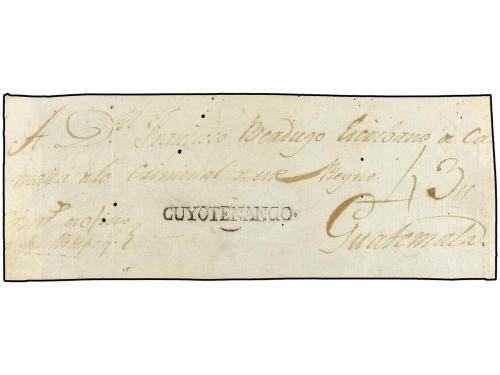 A Dn Francisco Berdugo Escribano de Ca
mara a lo Criminal de este Reyno.
CUYOTENANGO.
Guatemala.